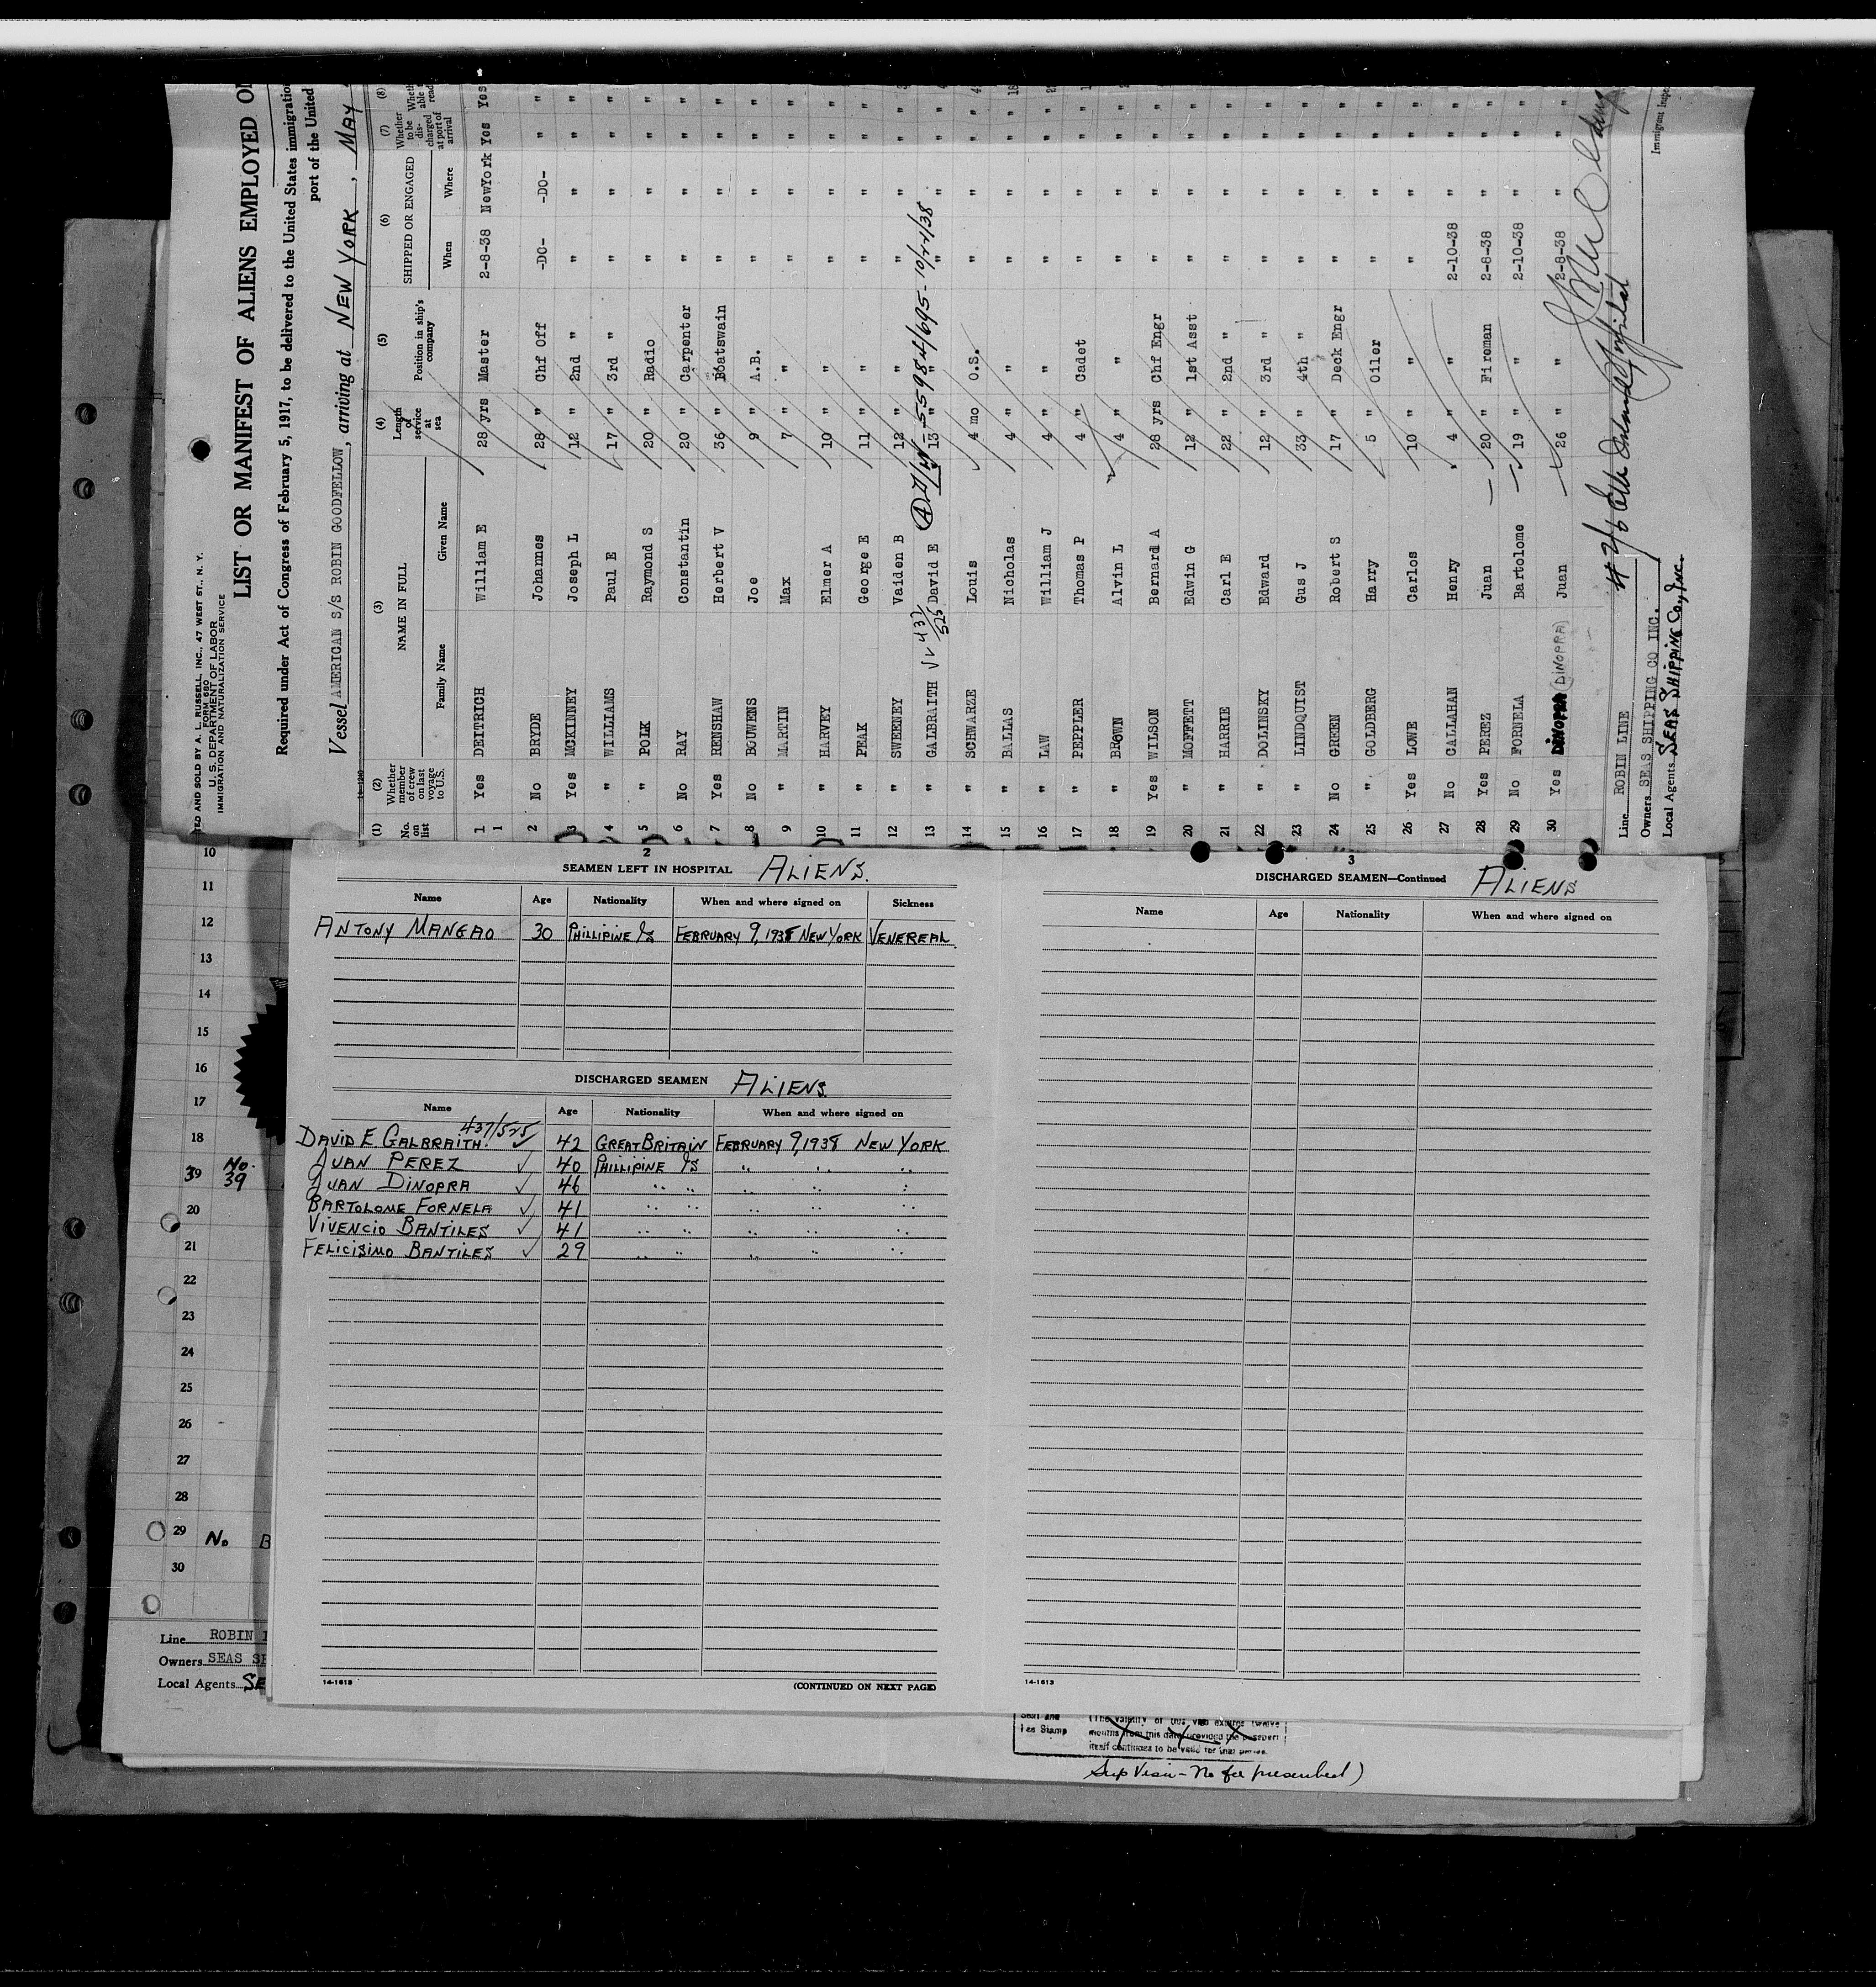 TED AND SOLD BY A. L. RUSSELL, INC., 47 WEST ST., N. Y.
FORM 680
U. S. DEPARTMENT OF LABOR
IMMIGRATION AND NATURALIZATION SERVICE
LIST OR MANIFEST OF ALIENS EMPLOYED
Required under Act of Congress of February 5, 1917, to be delivered to the United States immigration
port of the United
Vessel AMERICAN S/S ROBIN GOODFELLOW, arriving at NEW YORK, MAY
(1) (2) (3) (4) (5) (6) (7) (8)
No. on list Whether member of crew on last voyage to U.S. NAME IN FULL Family Name Given Name Length of service at sea Position in ship's company SHIPPED OR ENGAGED When Where Whether to be discharged at port of arrival
1 Yes DEITRICH William E 28 yrs Master 2-8-38 NewYork Yes Yes
1
2 No BRYDE Johannes 28 " Chf Off -DO- -DO- " "
3 Yes MCKINNEY Joseph L 12 " 2nd " " " " "
4 " WILLIAMS Paul E 17 " 3rd " " " " "
5 " POLK Raymond S 20 " Radio " " " "
6 No RAY Constantin 20 " Carpenter " " " "
7 Yes RENSHAW Herbert V 36 " Boatswain " " " "
8 No BOUWENS Joe 9 " A.B. " " " "
9 " MARTIN Max 7 " " " " " "
10 " HARVEY Elmer A 10 " " " " " "
11 " PEAK George E 11 " " " " " "
12 " SWEENEY Vaiden B 12 " " " " " "
13 " GALBRAITH 437/525 David E 13 " " " " " "
14 " SCHWARZE Louis 4 mo O.S. " " " "
15 " BALLAS Nicholas 4 " " " " " "
16 " LAW William J 4 " " " " " "
17 " PEPPLER Thomas P 4 " Cadet " " " "
18 " BROWN Alvin L 4 " " " " " "
19 Yes WILSON Bernard A 28 yrs Chf Engr " " " "
20 " MOFFETT Edwin G 12 " 1st Asst " " " "
21 " HARRIE Carl E 22 " 2nd " " " " "
22 " DOLINSKY Edward 12 " 3rd " " " " "
23 " LINDQUIST Gus J 33 " 4th " " " " "
24 No GREEN Robert S 17 " Deck Engr " " " "
25 " GOLDBERG Harry 5 " Oiler " " " "
26 Yes LOWE Carlos 10 " " " " " "
27 No CALLAHAN Henry 4 " " 2-10-38 " " "
28 Yes PEREZ Juan 20 " Fireman 2-8-38 " " "
29 No FORNELA Bartolome 19 " " 2-10-38 " " "
30 Yes DINOPRA (DINOPRA) Juan 26 " " 2-8-38 " " "
Line ROBIN LINE
Owners SEAS SHIPPING CO INC.
Local Agents SEAS SHIPPING Co., INC.
Immigrant Inspe
2
SEAMEN LEFT IN HOSPITAL ALIENS.
Name Age Nationality When and where signed on Sickness
ANTONY MANGAO 30 PHILLIPINE Is FEBRUARY 9, 1938 NEW YORK VENEREAL
DISCHARGED SEAMEN ALIENS.
Name Age Nationality When and where signed on
437/525
DAVID E GALBRAITH. 42 GREAT BRITAIN FEBRUARY 9, 1938 NEW YORK
JUAN PEREZ 40 PHILLIPINE Is " " "
JUAN DINOPRA 46 " " " " "
BARTOLOME FORNELA 41 " " " " "
VIVENCIO BANTILES 41 " " " " "
FELICISIMO BANTILES 29 " " " " "
14-1613
(CONTINUED ON NEXT PAGE)
3
DISCHARGED SEAMEN—Continued ALIENS
Name Age Nationality When and where signed on
14-1613
10
11
12
13
14
15
16
17
18
39 No. 39
20
21
22
23
24
25
26
27
28
29 No B
30
Line ROBIN
Owners SEAS SH
Local Agents SE
Seal and (The validity of this visa expires twelve
Fee Stamp months from this date provided the passport
itself continues to be valid for that period.
No fee prescribed)